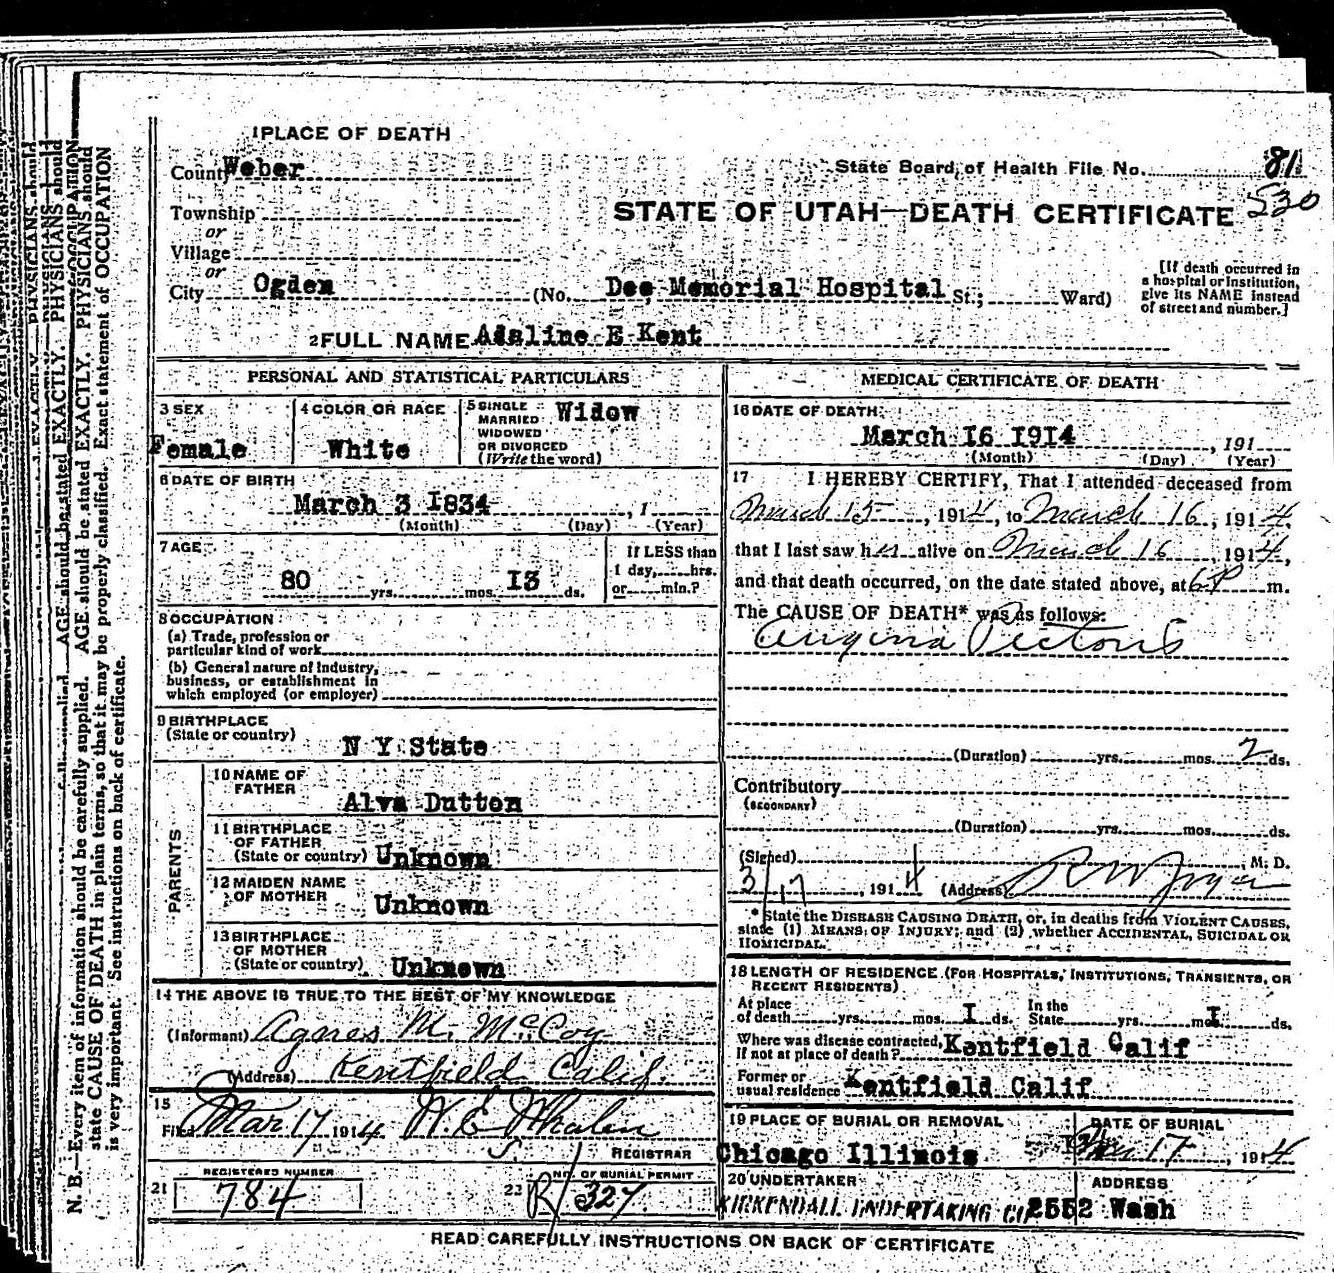 1 PLACE OF DEATH
County Weber
State Board of Health File No. 81
530
Township
or
Village
or
City Ogden
STATE OF UTAH—DEATH CERTIFICATE
(No. Dee Memorial Hospital St.; Ward)
[If death occurred in
a hospital or institution,
give its NAME instead
of street and number.]
2 FULL NAME Adaline E Kent
PERSONAL AND STATISTICAL PARTICULARS
3 SEX
Female
4 COLOR OR RACE
White
5 SINGLE
MARRIED
WIDOWED
OR DIVORCED
(Write the word)
Widow
6 DATE OF BIRTH
March 3 1834 , 1
(Month) (Day) (Year)
7 AGE
80 yrs. mos. 13 ds.
If LESS than
1 day, hrs.
or min.?
8 OCCUPATION
(a) Trade, profession or
particular kind of work
(b) General nature of industry,
business, or establishment in
which employed (or employer)
9 BIRTHPLACE
(State or country)
N Y State
PARENTS
10 NAME OF
FATHER
Alva Dutton
11 BIRTHPLACE
OF FATHER
(State or country) Unknown
12 MAIDEN NAME
OF MOTHER
Unknown
13 BIRTHPLACE
OF MOTHER
(State or country) Unknown
14 THE ABOVE IS TRUE TO THE BEST OF MY KNOWLEDGE
(Informant) Agnes M. McCoy
(Address) Kentfield Calif.
15
Filed Mar 17 1914 W. E. Whalen
REGISTRAR
REGISTERED NUMBER
21 784
NO. OF BURIAL PERMIT
22 R/327
MEDICAL CERTIFICATE OF DEATH
16 DATE OF DEATH
March 16 1914 , 191
(Month) (Day) (Year)
17 I HEREBY CERTIFY, That I attended deceased from
March 15 , 1914, to March 16, 1914,
that I last saw her alive on March 16, 1914,
and that death occurred, on the date stated above, at 6 P m.
The CAUSE OF DEATH* was as follows:
Angina Pectoris
(Duration) yrs. mos. 2 ds.
Contributory
(SECONDARY)
(Duration) yrs. mos. ds.
(Signed) R W , M. D.
3/17, 1914 (Address)
* State the DISEASE CAUSING DEATH, or, in deaths from VIOLENT CAUSES,
state (1) MEANS OF INJURY; and (2) whether ACCIDENTAL, SUICIDAL OR
HOMICIDAL.
18 LENGTH OF RESIDENCE (FOR HOSPITALS, INSTITUTIONS, TRANSIENTS, OR
RECENT RESIDENTS)
At place
of death yrs. mos. 1 ds.
In the
State yrs. mos. 1 ds.
Where was disease contracted,
if not at place of death? Kentfield Calif
Former or
usual residence Kentfield Calif
19 PLACE OF BURIAL OR REMOVAL
Chicago Illinois
DATE OF BURIAL
Mar 17, 1914
20 UNDERTAKER
KIRKENDALL UNDERTAKING CO.
ADDRESS
2552 Wash
READ CAREFULLY INSTRUCTIONS ON BACK OF CERTIFICATE
N. B.—Every item of information should be carefully supplied. AGE should be stated EXACTLY. PHYSICIANS should
state CAUSE OF DEATH in plain terms, so that it may be properly classified. Exact statement of OCCUPATION
is very important. See instructions on back of certificate.